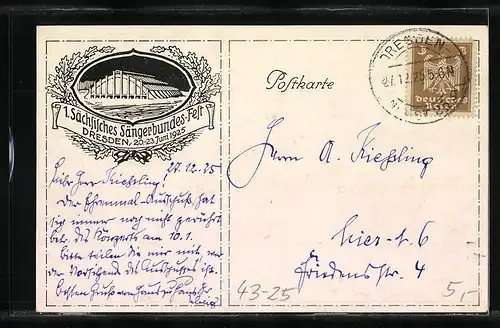 1. Sächsisches Sängerbundes-Fest
DRESDEN, 20.-23. Juni 1925
27.12.25
Lieber Herr Kießling!
Der Ehrenmal-Ausschuß hat
sich immer noch nicht gerührt
betr. des Konzerts am 10.1.
Bitte teilen Sie mir mit, wer
der Vorsitzende des Ausschusses ist.
Besten Gruß von Haus zu Haus Ihr
Postkarte
DRESDEN
27.12.25 5-6 N
Deutsches
Herrn A. Kießling
hier-N. 6
Friedensstr. 4
43-25
5,-